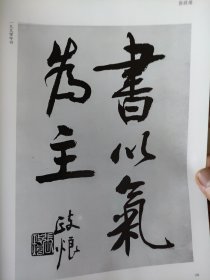 書以氣
為主
政烺